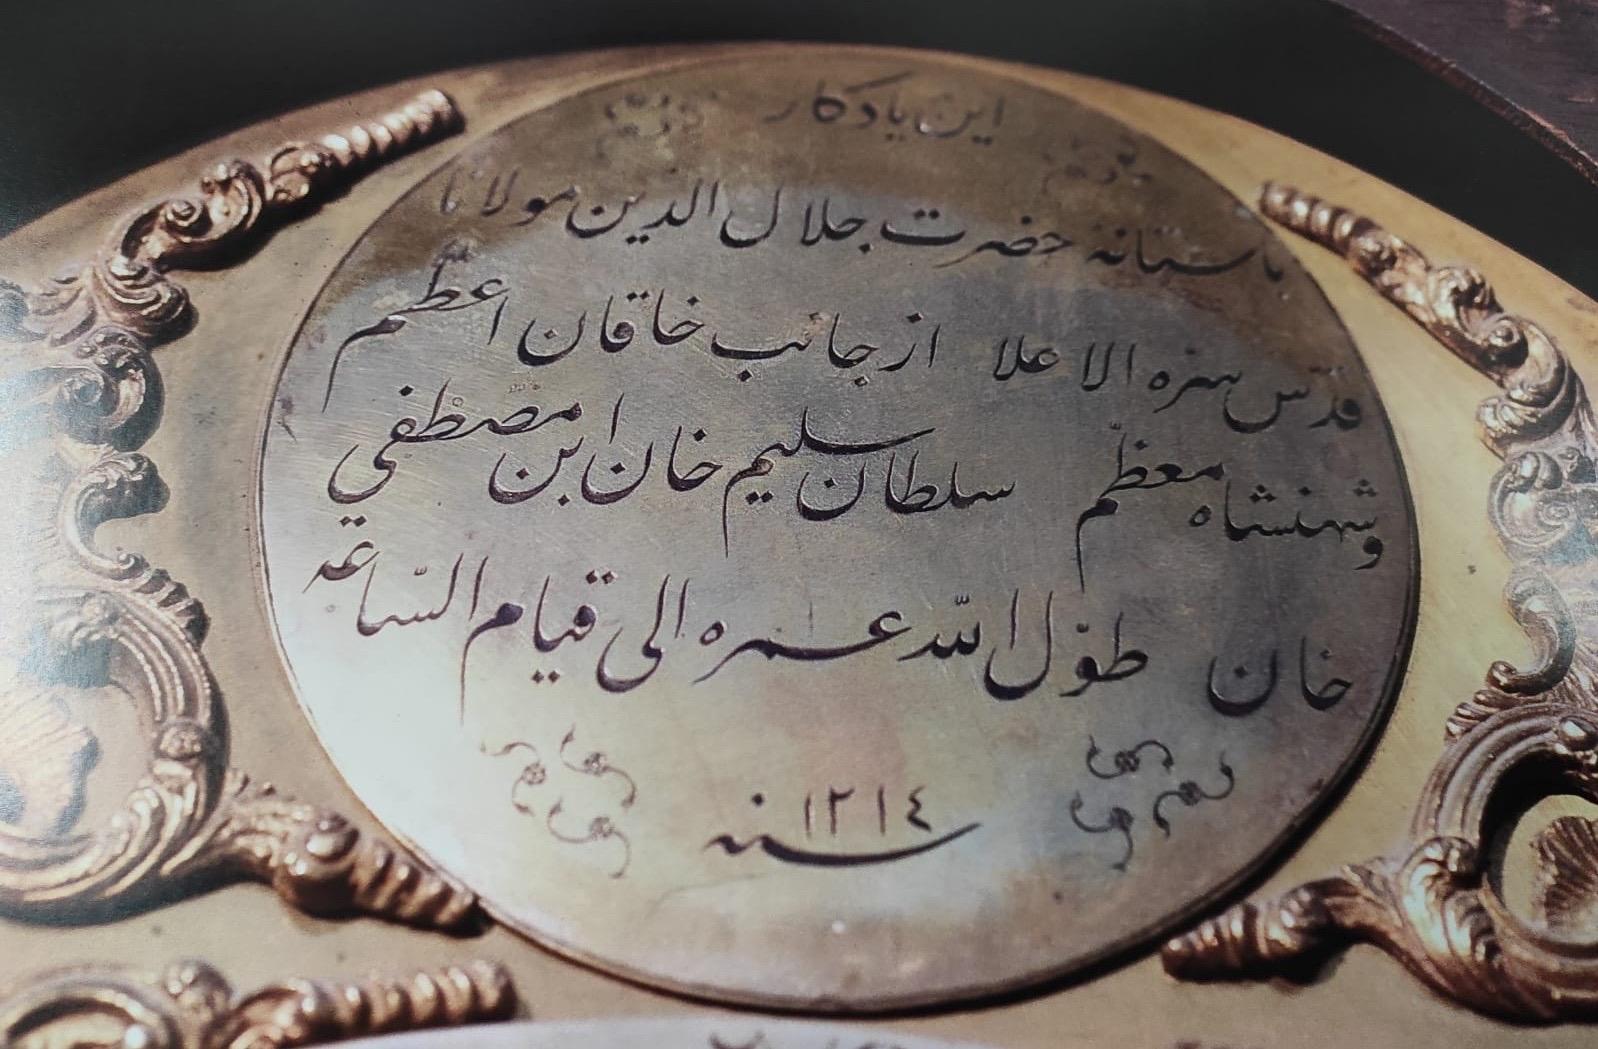 این یادکار
باستانهٔ حضرت جلال الدین مولانا
قدّس سره الاعلا از جانب خاقان اعظم
وشهنشاه معظّم سلطان سلیم خان ابن مصطفی
خان طوّل اللّه عمره الی قیام السّاعة
سنه ١٢١٤